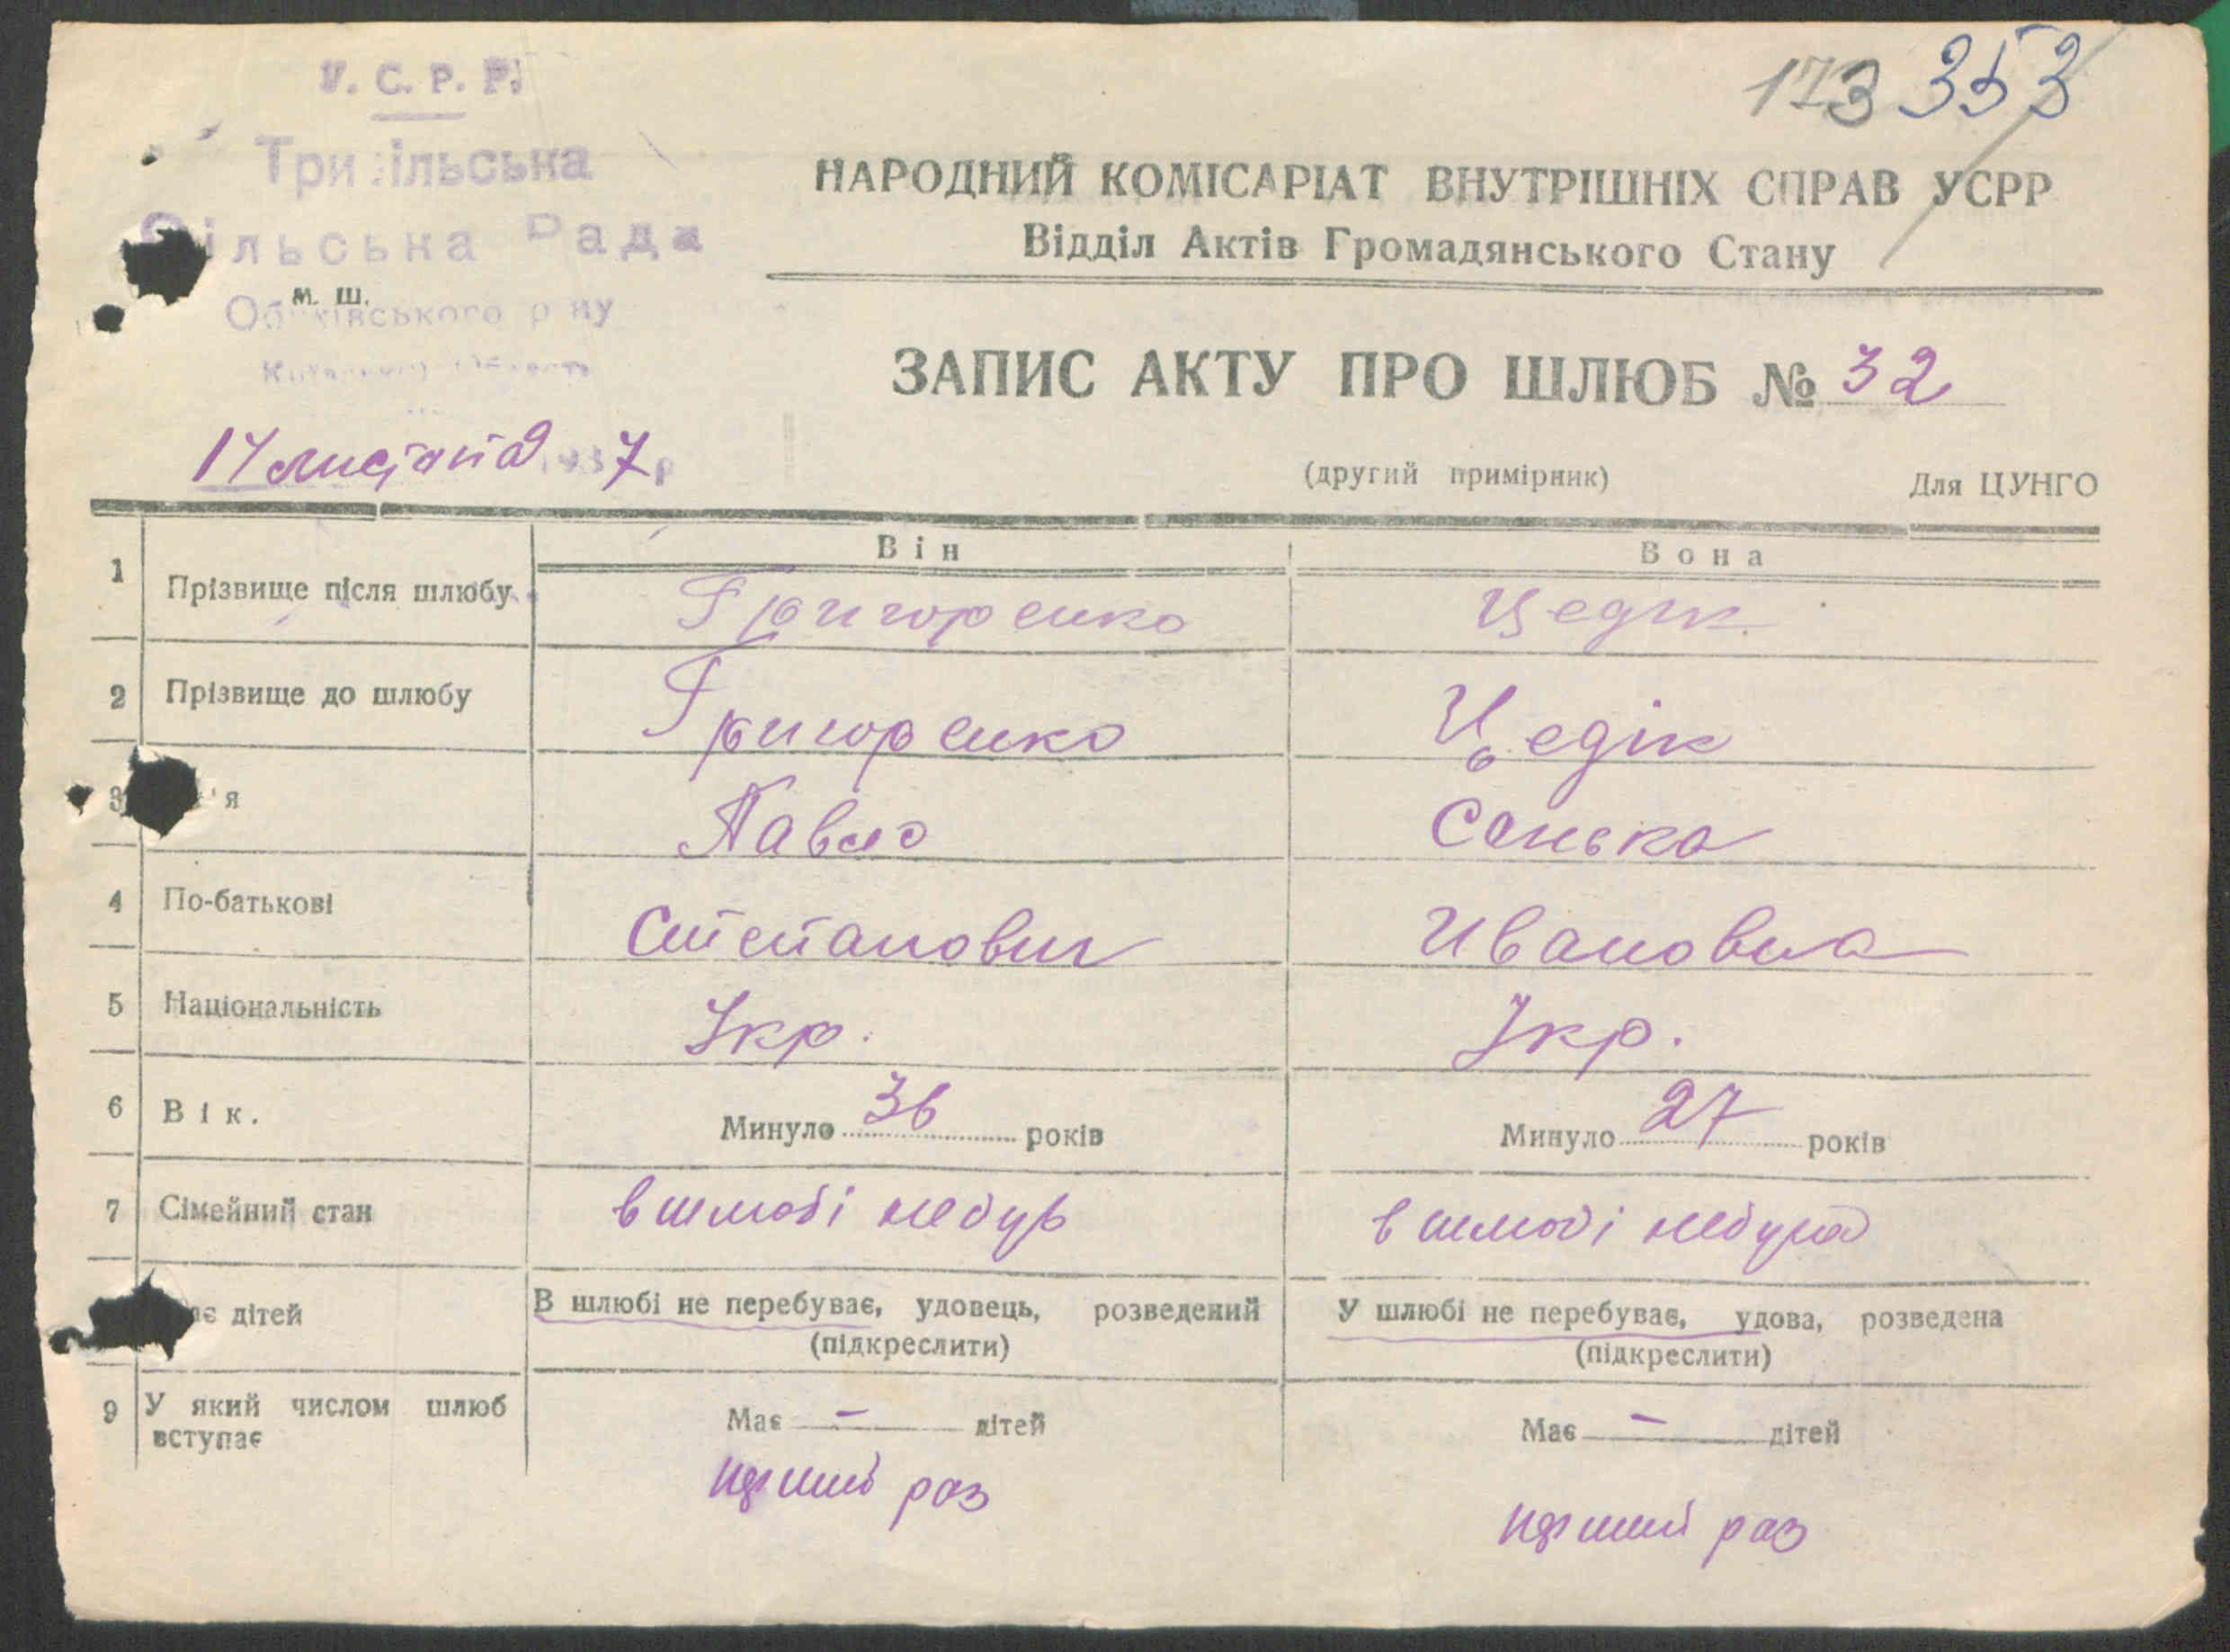 У. С. Р. Р.
Трипільська
Сільська Рада
м. ш.
Обухівського р ну
173 353
НАРОДНИЙ КОМІСАРІАТ ВНУТРІШНІХ СПРАВ УСРР
Відділ Актів Громадянського Стану
ЗАПИС АКТУ ПРО ШЛЮБ № 32
17 листопад 1937 р
(другий примірник) Для ЦУНГО
Він Вона
1 Прізвище після шлюбу Григоренко Цедік
2 Прізвище до шлюбу Григоренко Цедік
3 'я Павло Санька
4 По-батькові Степанович Ивановна
5 Національність Укр. Укр.
6 Вік. Минуло 36 років Минуло 27 років
7 Сімейний стан в шлюбі небув в шлюбі небула
має дітей В шлюбі не перебуває, удовець, розведений У шлюбі не перебуває, удова, розведена
(підкреслити) (підкреслити)
9 У який числом шлюб вступає Має – дітей Має – дітей
перший раз перший раз